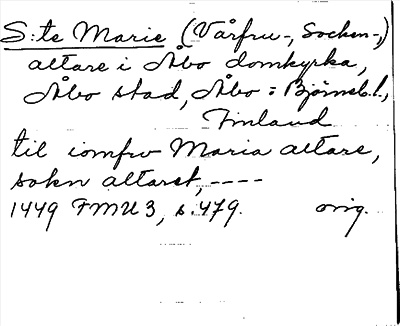 S:te Marie (Vårfru-, Socken-,)
altare i Åbo domkyrka,
Åbo stad, Åbo = Björneb.l.,
Finland
til iomfrv Maria altare,
sokn altaret, ----
1449 FMU 3, s. 479. orig.